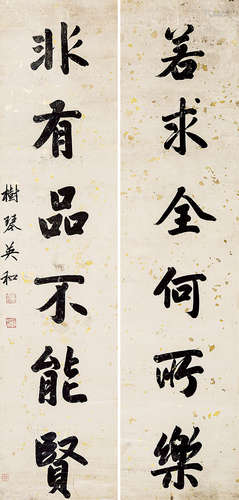 若求全何所樂
非有品不能賢
樹琴英和